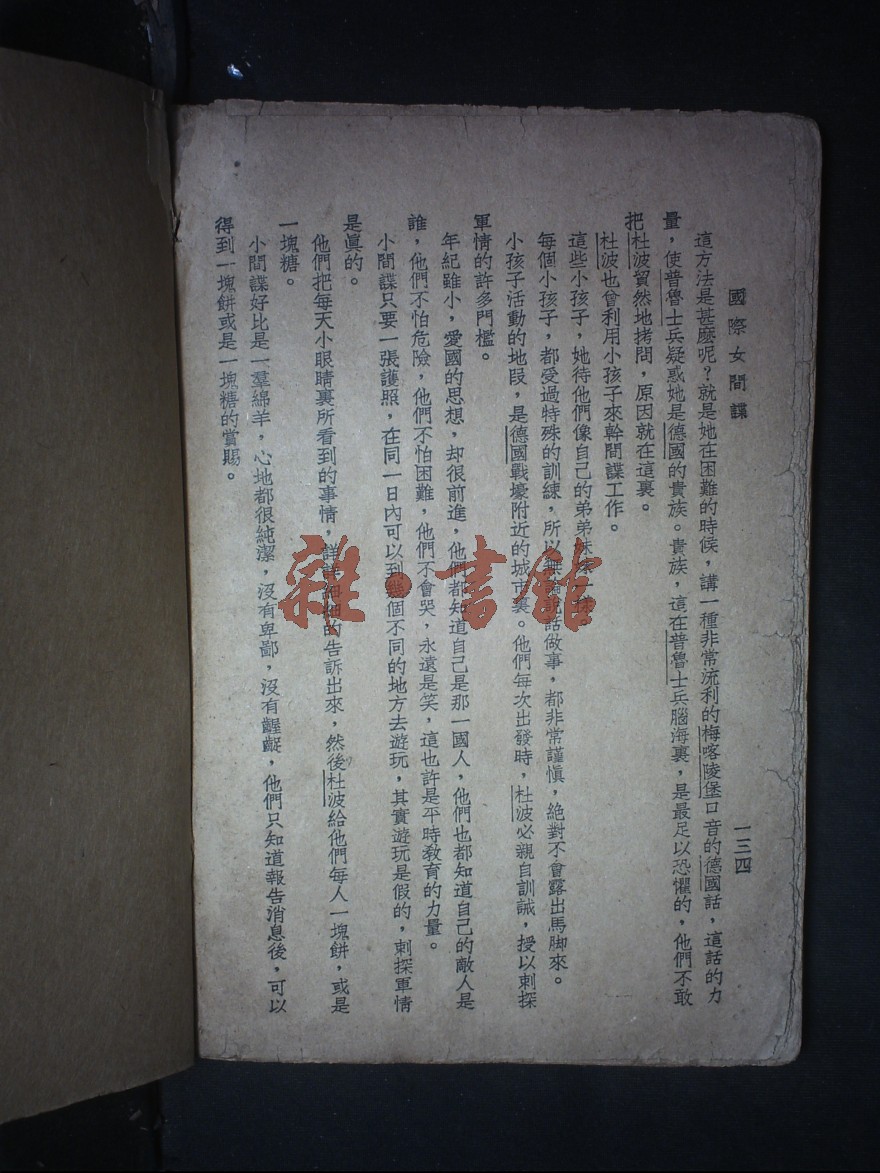 國際女間諜
一三四
這方法是甚麼呢？就是她在困難的時候，講一種非常流利的梅喀陵堡口音的德國話，這話的力
量，使普魯士兵疑惑她是德國的貴族。貴族，這在普魯士兵腦海裏，是最足以恐懼的，他們不敢
把杜波貿然地拷問，原因就在這裏。
杜波也會利用小孩子來幹間諜工作。
這些小孩子，她待他們像自己的弟弟妹妹一樣。
每個小孩子，都受過特殊的訓練，所以無論說話做事，都非常謹愼，絕對不會露出馬脚來。
小孩子活動的地段，是德國戰壕附近的城市裏。他們每次出發時，杜波必親自訓誡，授以刺探
軍情的許多門檻。
年紀雖小，愛國的思想，却很前進，他們都知道自己是那一國人，他們也都知道自己的敵人是
誰，他們不怕危險，他們不怕困難，他們不會哭，永遠是笑，這也許是平時敎育的力量。
小間諜只要一張護照，在同一日內可以到幾個不同的地方去遊玩，其實遊玩是假的，刺探軍情
是眞的。
他們把每天小眼睛裏所看到的事情，詳詳細細的告訴出來，然後杜波給他們每人一塊餅，或是
一塊糖。
小間諜好比是一羣綿羊，心地都很純潔，沒有卑鄙，沒有齷齪，他們只知道報告消息後，可以
得到一塊餅或是一塊糖的賞賜。
雜·書館